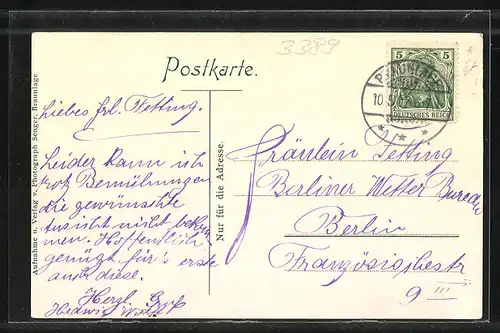 3389
Postkarte.
5 5
DEUTSCHES REICH
Aufnahme u. Verlag v. Photograph Senger, Braunlage
Nur für die Adresse.
Liebes Frl. Fetting.
Leider kann ich
trotz Bemühungen
die gewünschte
Ansicht nicht bekom
men. Hoffentlich
genügt für's erste
auch diese.
Herzl.
Hedwig
Fräulein Fetting
Berliner Wetter Bureau
Berlin
Französischestr
9 III